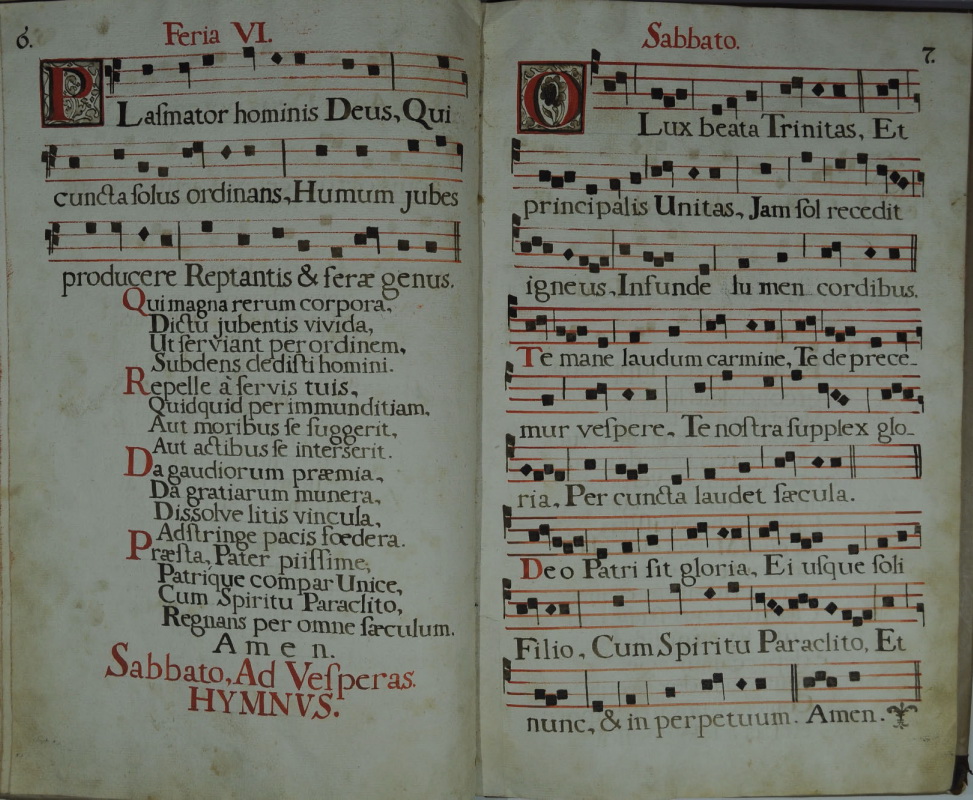 6.
Feria VI.
PLaſmator hominis Deus, Qui
cuncta ſolus ordinans, Humum jubes
producere Reptantis & feræ genus.
Qui magna rerum corpora,
Dictu jubentis vivida,
Ut ſerviant per ordinem,
Subdens dediſti homini.
Repelle à ſervis tuis,
Quidquid per immunditiam,
Aut moribus ſe ſuggerit,
Aut actibus ſe interſerit.
Da gaudiorum præmia,
Da gratiarum munera,
Dissolve litis vincula,
Adſtringe pacis fœdera.
Præſta, Pater piiſſime,
Patrique compar Unice,
Cum Spiritu Paraclito,
Regnans per omne ſæculum.
Amen.
Sabbato, Ad Veſperas.
HYMNVS.
Sabbato.
7.
O Lux beata Trinitas, Et
principalis Unitas, Jam ſol recedit
igneus, Infunde lu men cordibus.
Te mane laudum carmine, Te de prece-
mur veſpere, Te noſtra ſupplex glo-
ria, Per cuncta laudet ſæcula.
Deo Patri ſit gloria, Ei uſque ſoli
Filio, Cum Spiritu Paraclito, Et
nunc, & in perpetuum. Amen.